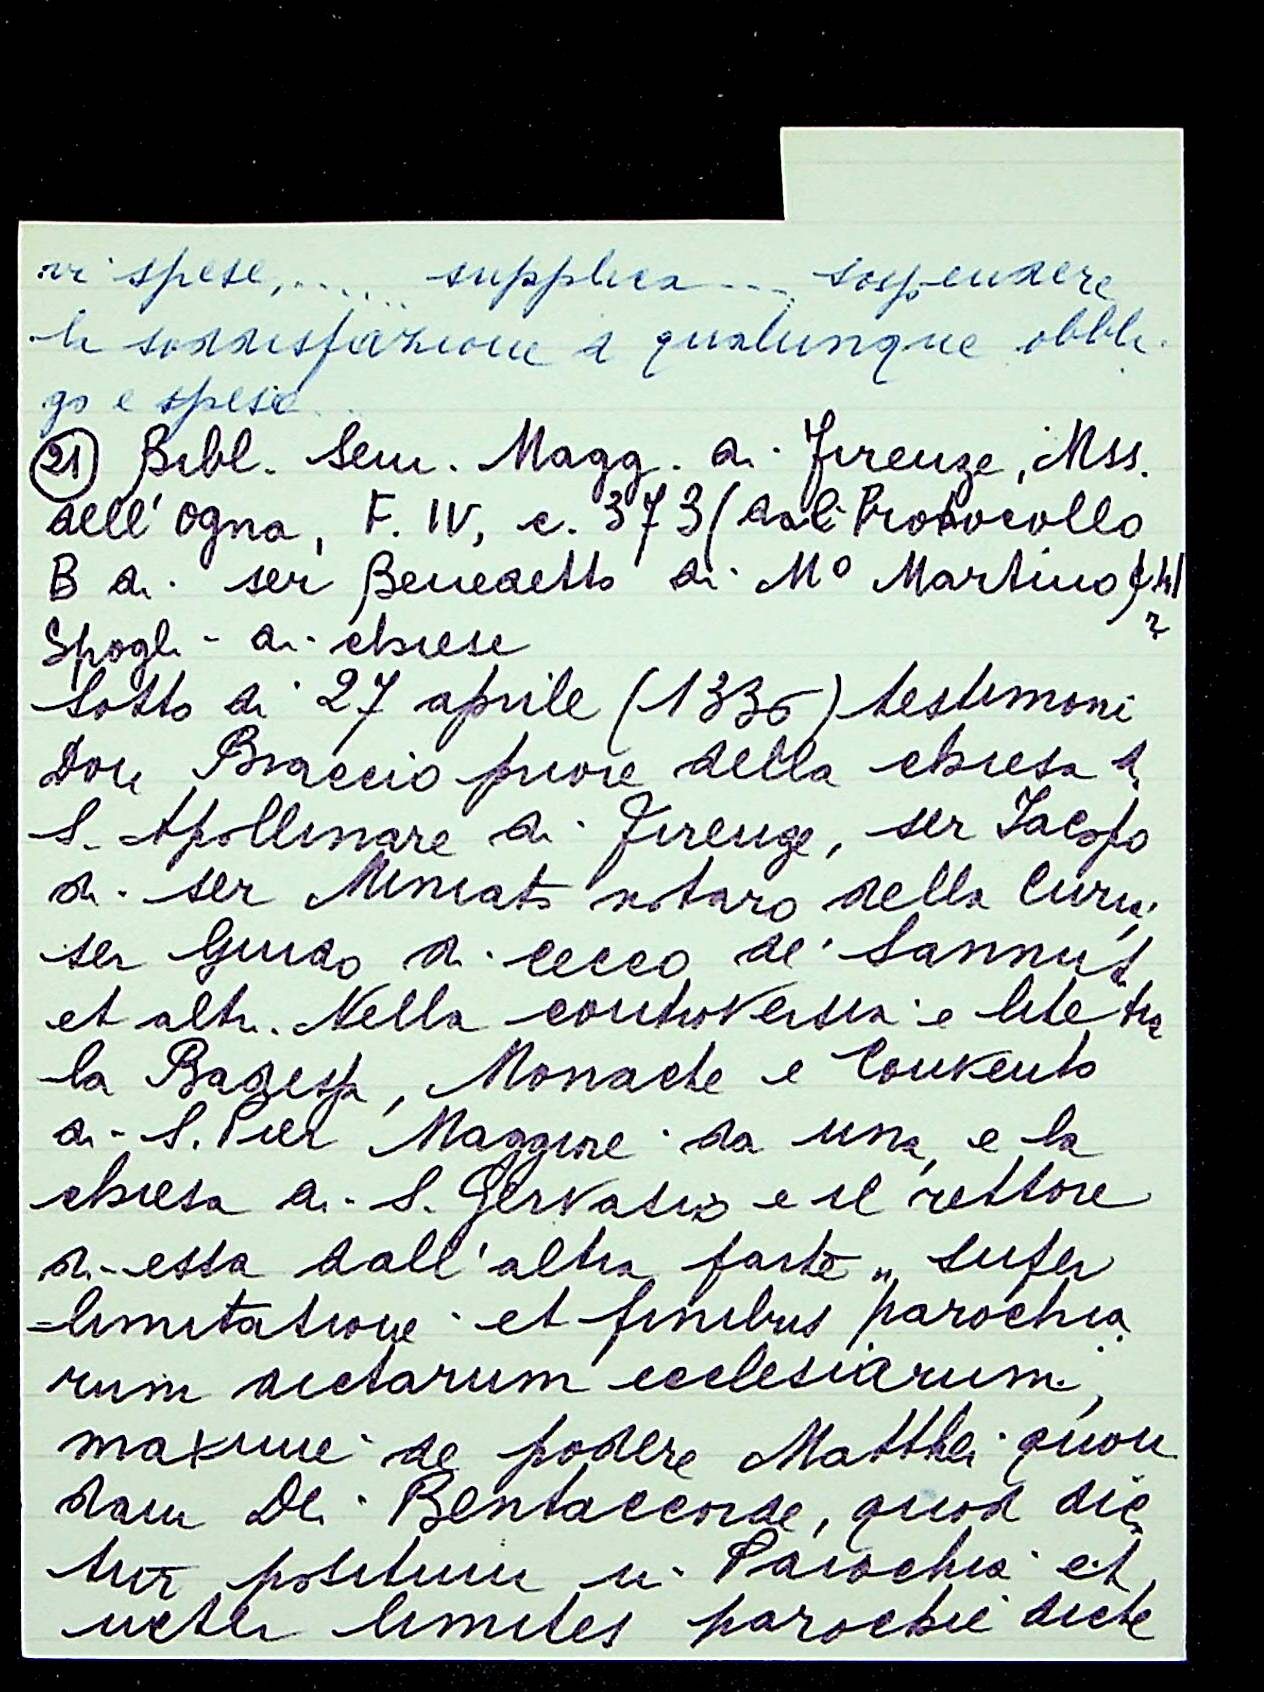 vi spese,....... supplica .... sospendere
la soddisfazione d qualunque obbli-
go e spesa...
(21) Bibl. Sem. Magg. di Firenze, Mss.
dell'Ogna, F. IV, c. 373 (dal Protocollo
B di ser Benedetto di M° Martino)
Spogli di chiese
Sotto di 27 aprile (1336) testimoni
Don Braccio priore della chiesa di
S. Apollinare di Firenze, ser Iacopo
di ser Miniato notaro della Curia,
ser Guido di Cecco de'
et altri. Nella controversia e lite tra
la Badessa, Monache e Convento
di S. Pier Maggiore da una, e la
chiesa di S. Gervasio e il rettore
di essa dall'altra parte „ super
limitatione et finibus parochia-
rum dictarum ecclesiarum,
maxime de podere Matthei quon-
dam Dni Bentaccorde, quod dici-
tur positum in Parochia et
limites parochie dicte